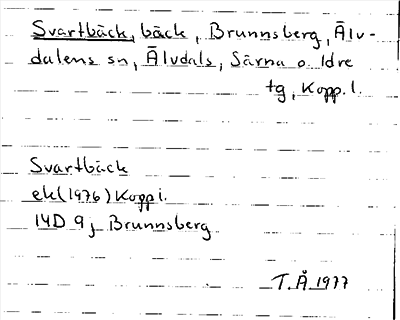 Svartbäck, bäck, Brunnsberg, Älv-
dalens sn, Älvdals, Särna o. Idre
tg, Kopp. l.
Svartbäck
ek(1976) Kopp l.
14D 9j Brunnsberg
T.Å 1977